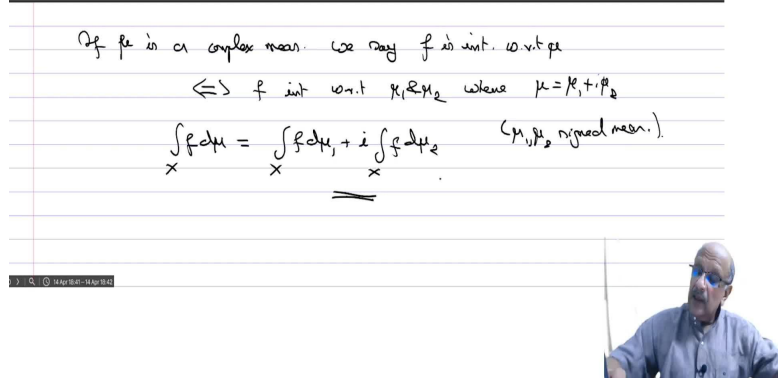 If μ is a complex meas. we say f is int. w.r.t μ
<=> f int w.r.t μ₁ & μ₂ where μ = μ₁ + iμ₂
∫_X f dμ = ∫_X f dμ₁ + i ∫_X f dμ₂ (μ₁, μ₂ signed meas.).
14 Apr 18:41 - 14 Apr 18:42